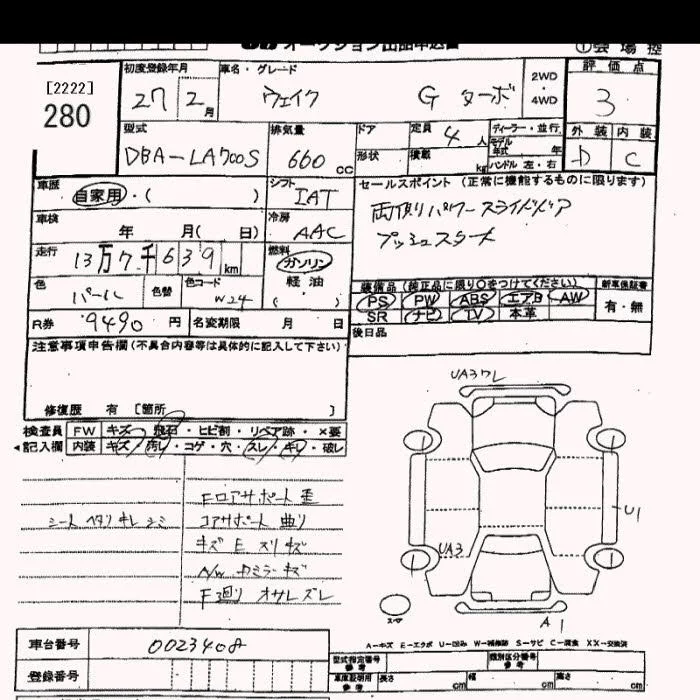 オークション出品申込書
① 会場控
[2222]
280
初度登録年月 車名・グレード 2WD ・ 4WD 評価点
27 2月 ウェイク G ターボ 3
型式 排気量 ドア 定員 4人 ディーラー・並行 外装 内装
DBA-LA700S 660cc 形状 積載 kg モデル年式 年 ハンドル 左・右 D C
車歴 自家用・( ) シフト IAT セールスポイント (正常に機能するものに限ります)
車検 年 月( 日) 冷房 AAC 両側パワースライドドア
プッシュスタート
走行 13万7千639km 燃料 ガソリン 軽油 ( )
色 パール 色替 色コード W24
装備品 (純正品に限り○をつけてください) 新車保証書
PS PW ABS エアB AW 有・無
SR ナビ TV 本革
R券 9490円 名変期限 月 日 後日品
注意事項申告欄(不具合内容等は具体的に記入して下さい)
修復歴 有 [箇所 ]
検査員 FW キズ・飛石・ヒビ割・リペア跡・×要
◂記入欄 内装 キズ・汚レ・コゲ・穴・スレ・キレ・破レ
シート ヘタリ キレ シミ
Fロアサポート歪
コアサポート曲り
キズ E スリキズ
A/W カミラーキズ
F廻り オサレズレ
UA3ワレ
U1
UA3
A1
スペア
A-キズ E-エクボ U-凹み W-補修跡 S-サビ C-腐食 XX-交換済
車台番号 0023408
登録番号
型式指定番号 参考 類別区分番号 参考
車庫証明用 参考 長さ cm 幅 cm 高さ cm